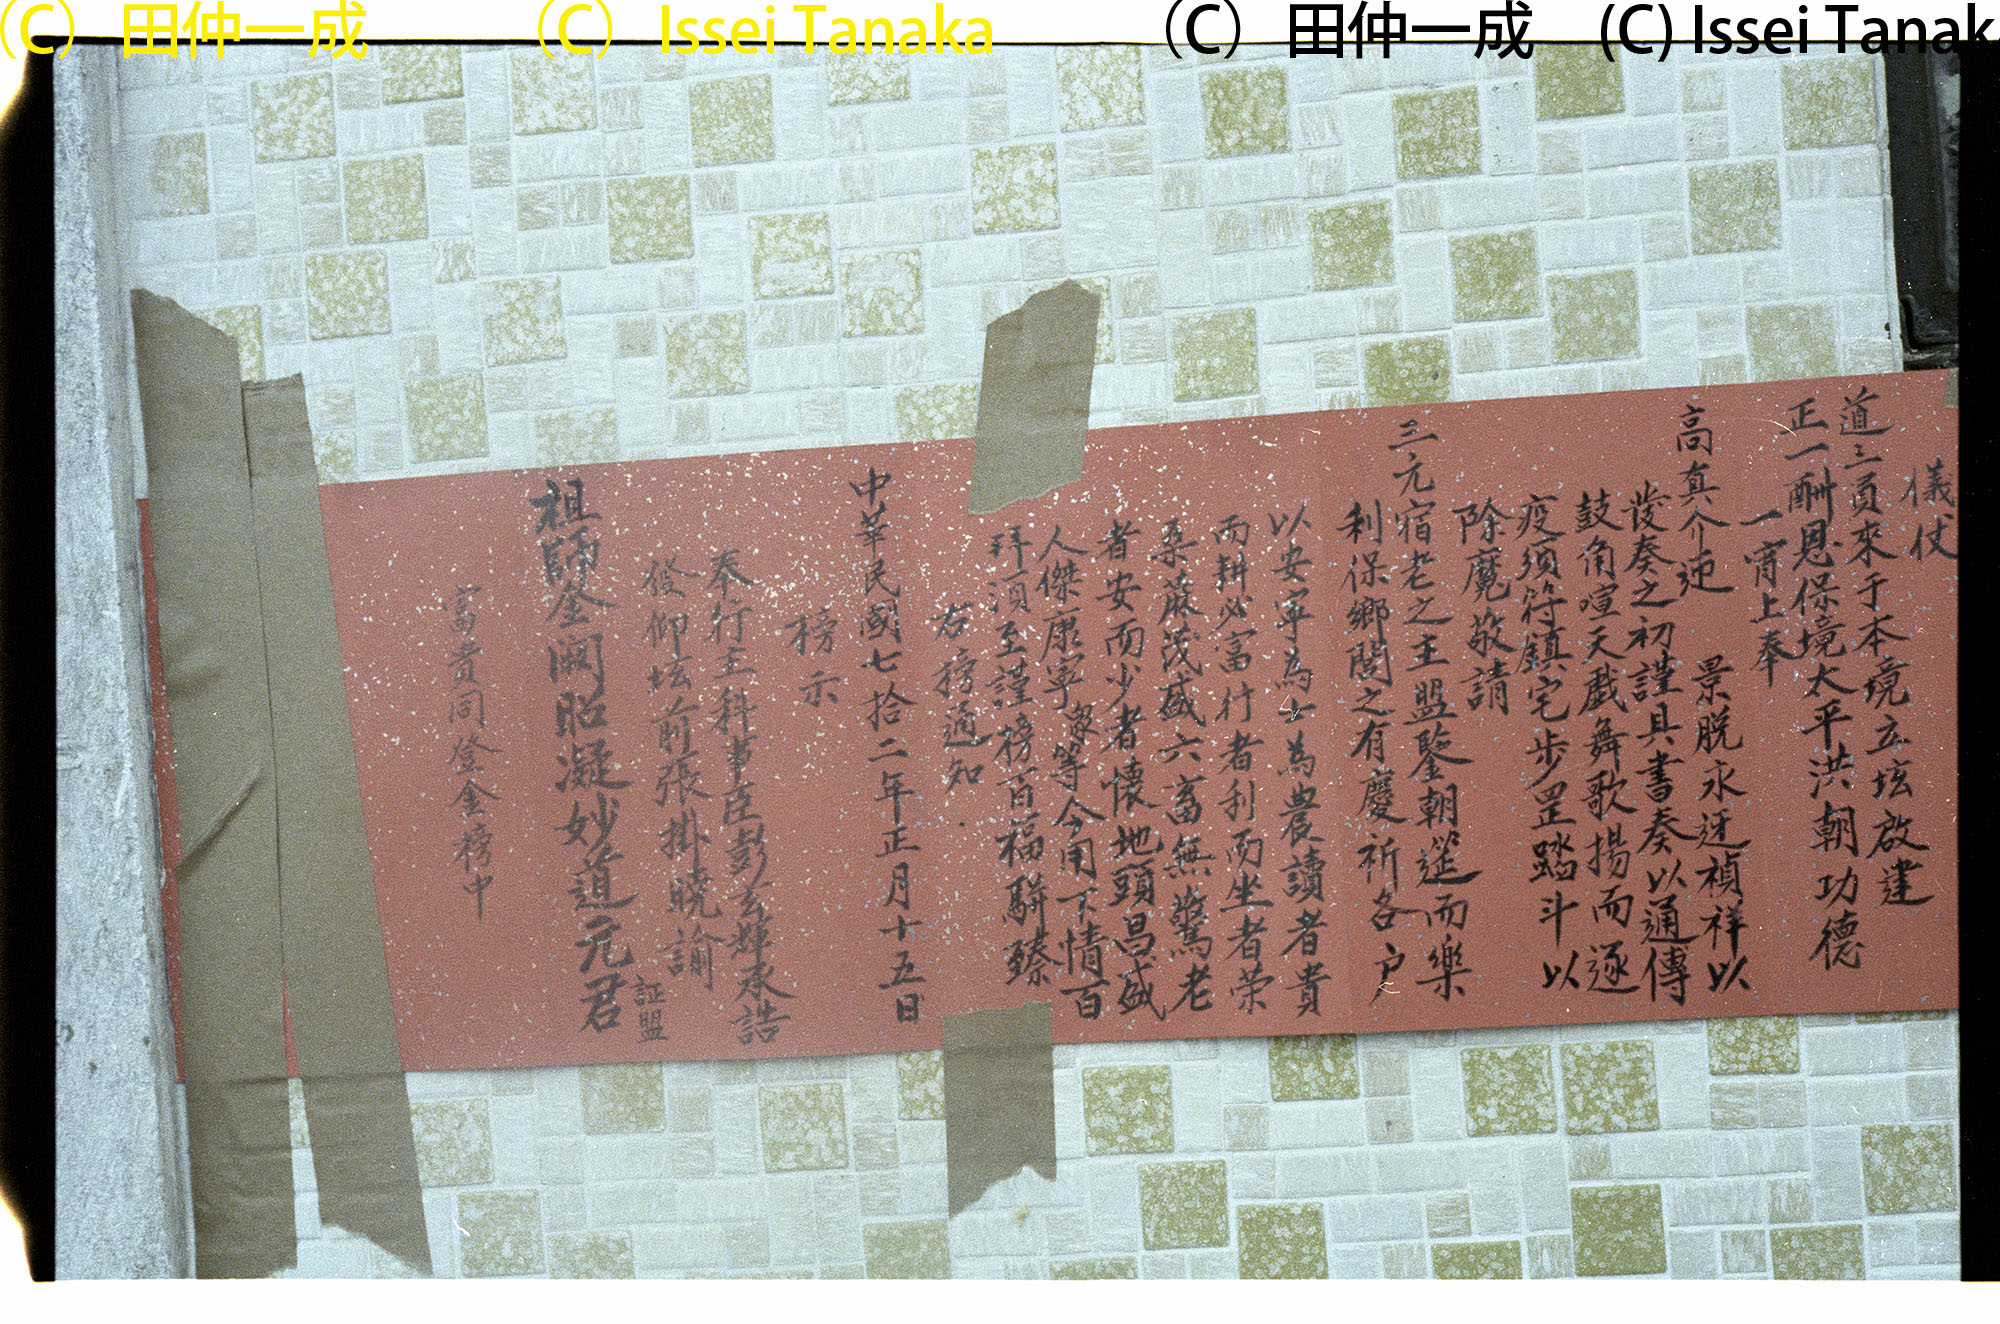 (C) 田仲一成 (C) Issei Tanaka (C) 田仲一成 (C) Issei Tanak
儀仗
道三員來于本境立坛啟建
正一酬恩保境太平洪朝功德
一宵上奉
高真介迊 景脱永迓禎祥以
發奏之初謹具書奏以通傳
鼓角喧天戲舞歌揚而逐
疫須符鎮宅步罡踏斗以
除魔敬請
三元宿老之主盟鑒朝筵而樂
利保鄉閭之有慶祈各户
以安寧為士為農讀者貴
而耕必富行者利而坐者荣
桑蔴茂盛六畜無驚老
者安而少者懷地頭昌盛
人傑康寧 眾等今用下情百
拜須至謹榜百福駢臻
右榜通知
中華民國七拾二年正月十五日
榜示
奉行主科事臣彭玄
承誥
發仰坛前張掛曉諭
証盟
祖師金闕昭凝妙道元君
富貴同登金榜中